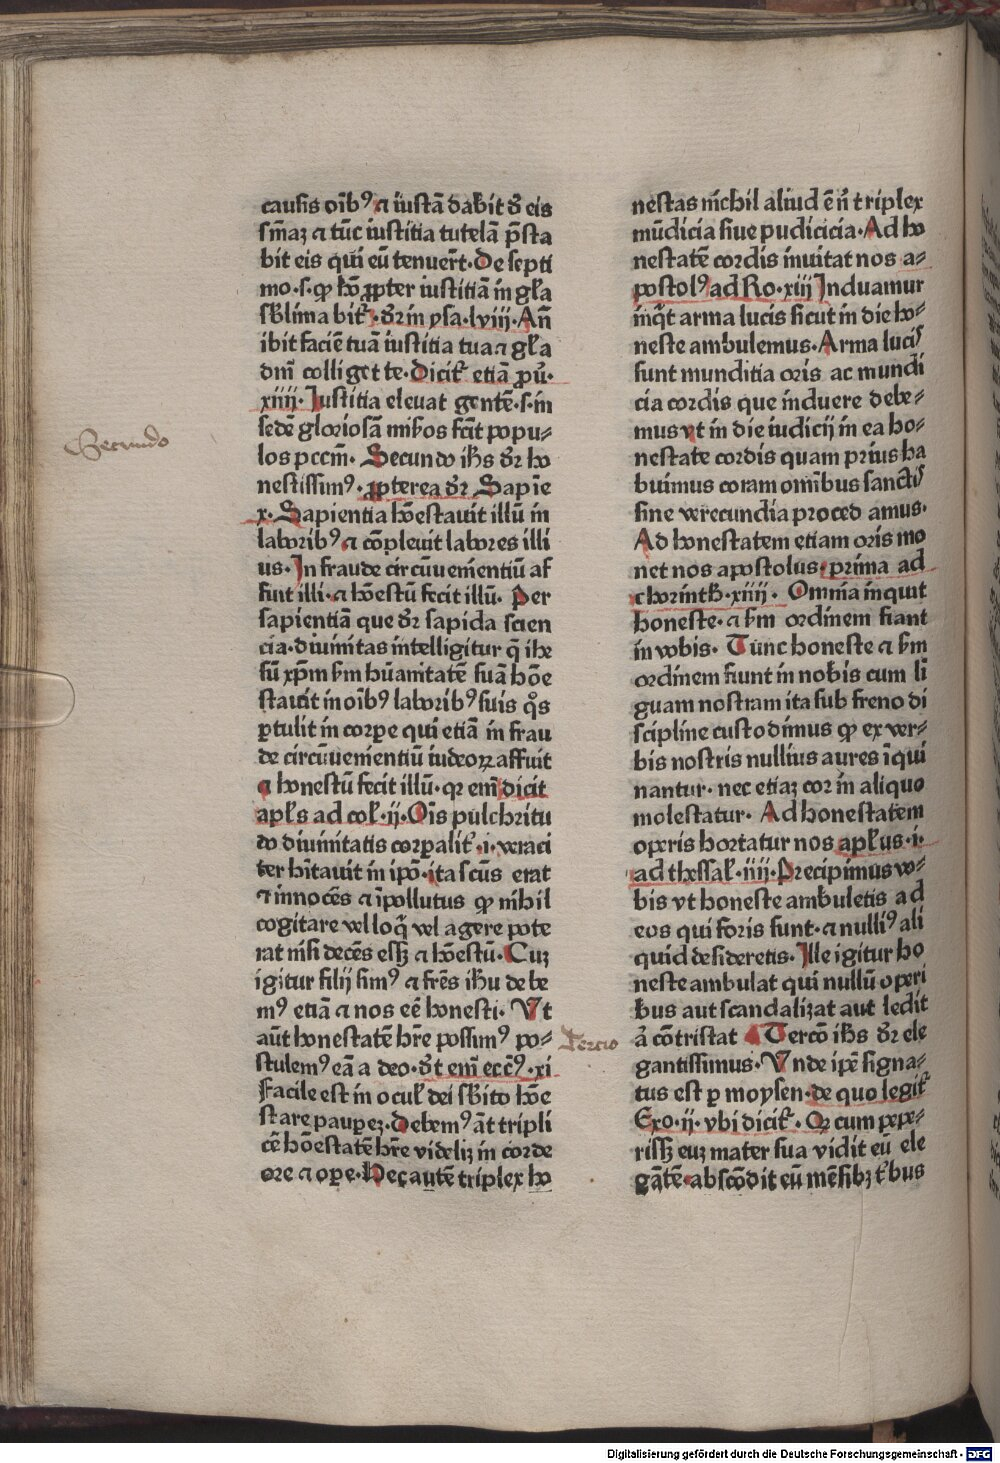 causis oībꝰ ⁊ iustā dabit ð eis
sn̄iaꝫ ⁊ tūc iustitia tutelā p̄sta
bit eis qui eū tenuer̄t. De septi
mo .s. ꝙ hō ꝓpter iustitiā in gl̓a
sb̓lima bit̓. dr̄ in ysa. lviij. An̄
ibit faciē tuā iustitia tua ⁊ gl̓a
dn̄i colliget te. Dicit̓ etiā ꝓu̓.
xiiij. Iustitia eleuat gentē .s. in
sedē gloriosā mis̓os fc̄it popu⸗
los pccm̄. Secundo ih̄s dr̄ ho
nestissimꝰ. ꝓpterea dr̄ Sapiē
x. Sapientia hōestauit illū in
laboribꝰ ⁊ cōpleuit labores illi
us. In fraude circūuenientiū af
fuit illi. ⁊ hōestū fecit illū. Per
sapientiā que dr̄ sapida scien
cia. diuinitas intelligitur q̄ ihe
sū xp̄m s̄m hūanitatē suā hōe
stauit in oībꝰ laboribꝰ suis qͦs
ꝑtulit in corꝑe qui etiā in frau
de circūuenientiū iudeoꝝ affuit
⁊ honestū fecit illū. qꝛ em̄ dicit
apl̓s ad col̓. ij. Oīs pulchritu
do diuinitatis corꝑalit̓ .i. veraci
ter hītauit in ip̄o. ita scūs erat
⁊ innocēs ⁊ īpollutus ꝙ nihil
cogitare vel loq̄ vel agere pote
rat nisi decēs essꝫ ⁊ hōestū. Cuꝫ
igitur filij simꝰ ⁊ fr̄es ih̄u debe
mꝰ etiā ⁊ nos eē honesti. Vt
aūt honestatē hr̄e possimꝰ po⸗
stulemꝰ eā a deo. dr̄t em̄ ecc̄ꝰ. xi
Facile est in ocul̓ dei sb̓ito hōe
stare pauꝑeꝫ. Debemꝰ āt tripli
cē hōestatē hr̄e videliꝫ in corde
ore ⁊ oꝑe. Hec autē triplex ho
nestas nichil aliud ē n̄ triplex
mūdicia siue pudicicia. Ad ho
nestatē cordis inuitat nos a⸗
postolꝰ ad Ro. xiij Induamur
inq̄t arma lucis sicut in die ho⸗
neste ambulemus. Arma lucis
sunt munditia oris ac mundi
cia cordis que induere debe⸗
mus vt in die iudicij in ea ho⸗
nestate cordis quam prius ha
buimus coram omībus sanctis
sine verecundia proced amus.
Ad honestatem etiam oris mo
net nos apostolus. prima ad
chorinth̓. xiiij. Omnia inquit
honeste. ⁊ s̄m ordinem fiant
in vobis. Tunc honeste ⁊ s̄m
ordinem fiunt in nobis cum li
guam nostram ita sub freno di
scipline custodimus ꝙ ex ver⸗
bis nostris nullius aures īqui
nantur. nec etiaꝫ cor in aliquo
molestatur. Ad honestatem
operis hortatur nos apl̓us. i.
ad thessal̓. iiij. Precipimus vo⸗
bis vt honeste ambuletis ad
eos qui foris sunt. ⁊ nulliꝰ ali
quid desideretis. Ille igitur ho
neste ambulat qui nullū operi
bus aut scandalizat aut ledit
a̓ cōtristat Tercō ih̄s dr̄ ele
gantissimus. Vnde ip̄e signa⸗
tus est ꝑ moysen. de quo legit̓
Exo. ij. vbi dicit̓. Qꝛ cum pepe⸗
rissꝫ euꝫ mater sua vidit eū ele
gātē abscōdit eū mēsibꝫ t̓bus
Secundo
Tercio
Digitalisierung gefördert durch die Deutsche Forschungsgemeinschaft - DFG